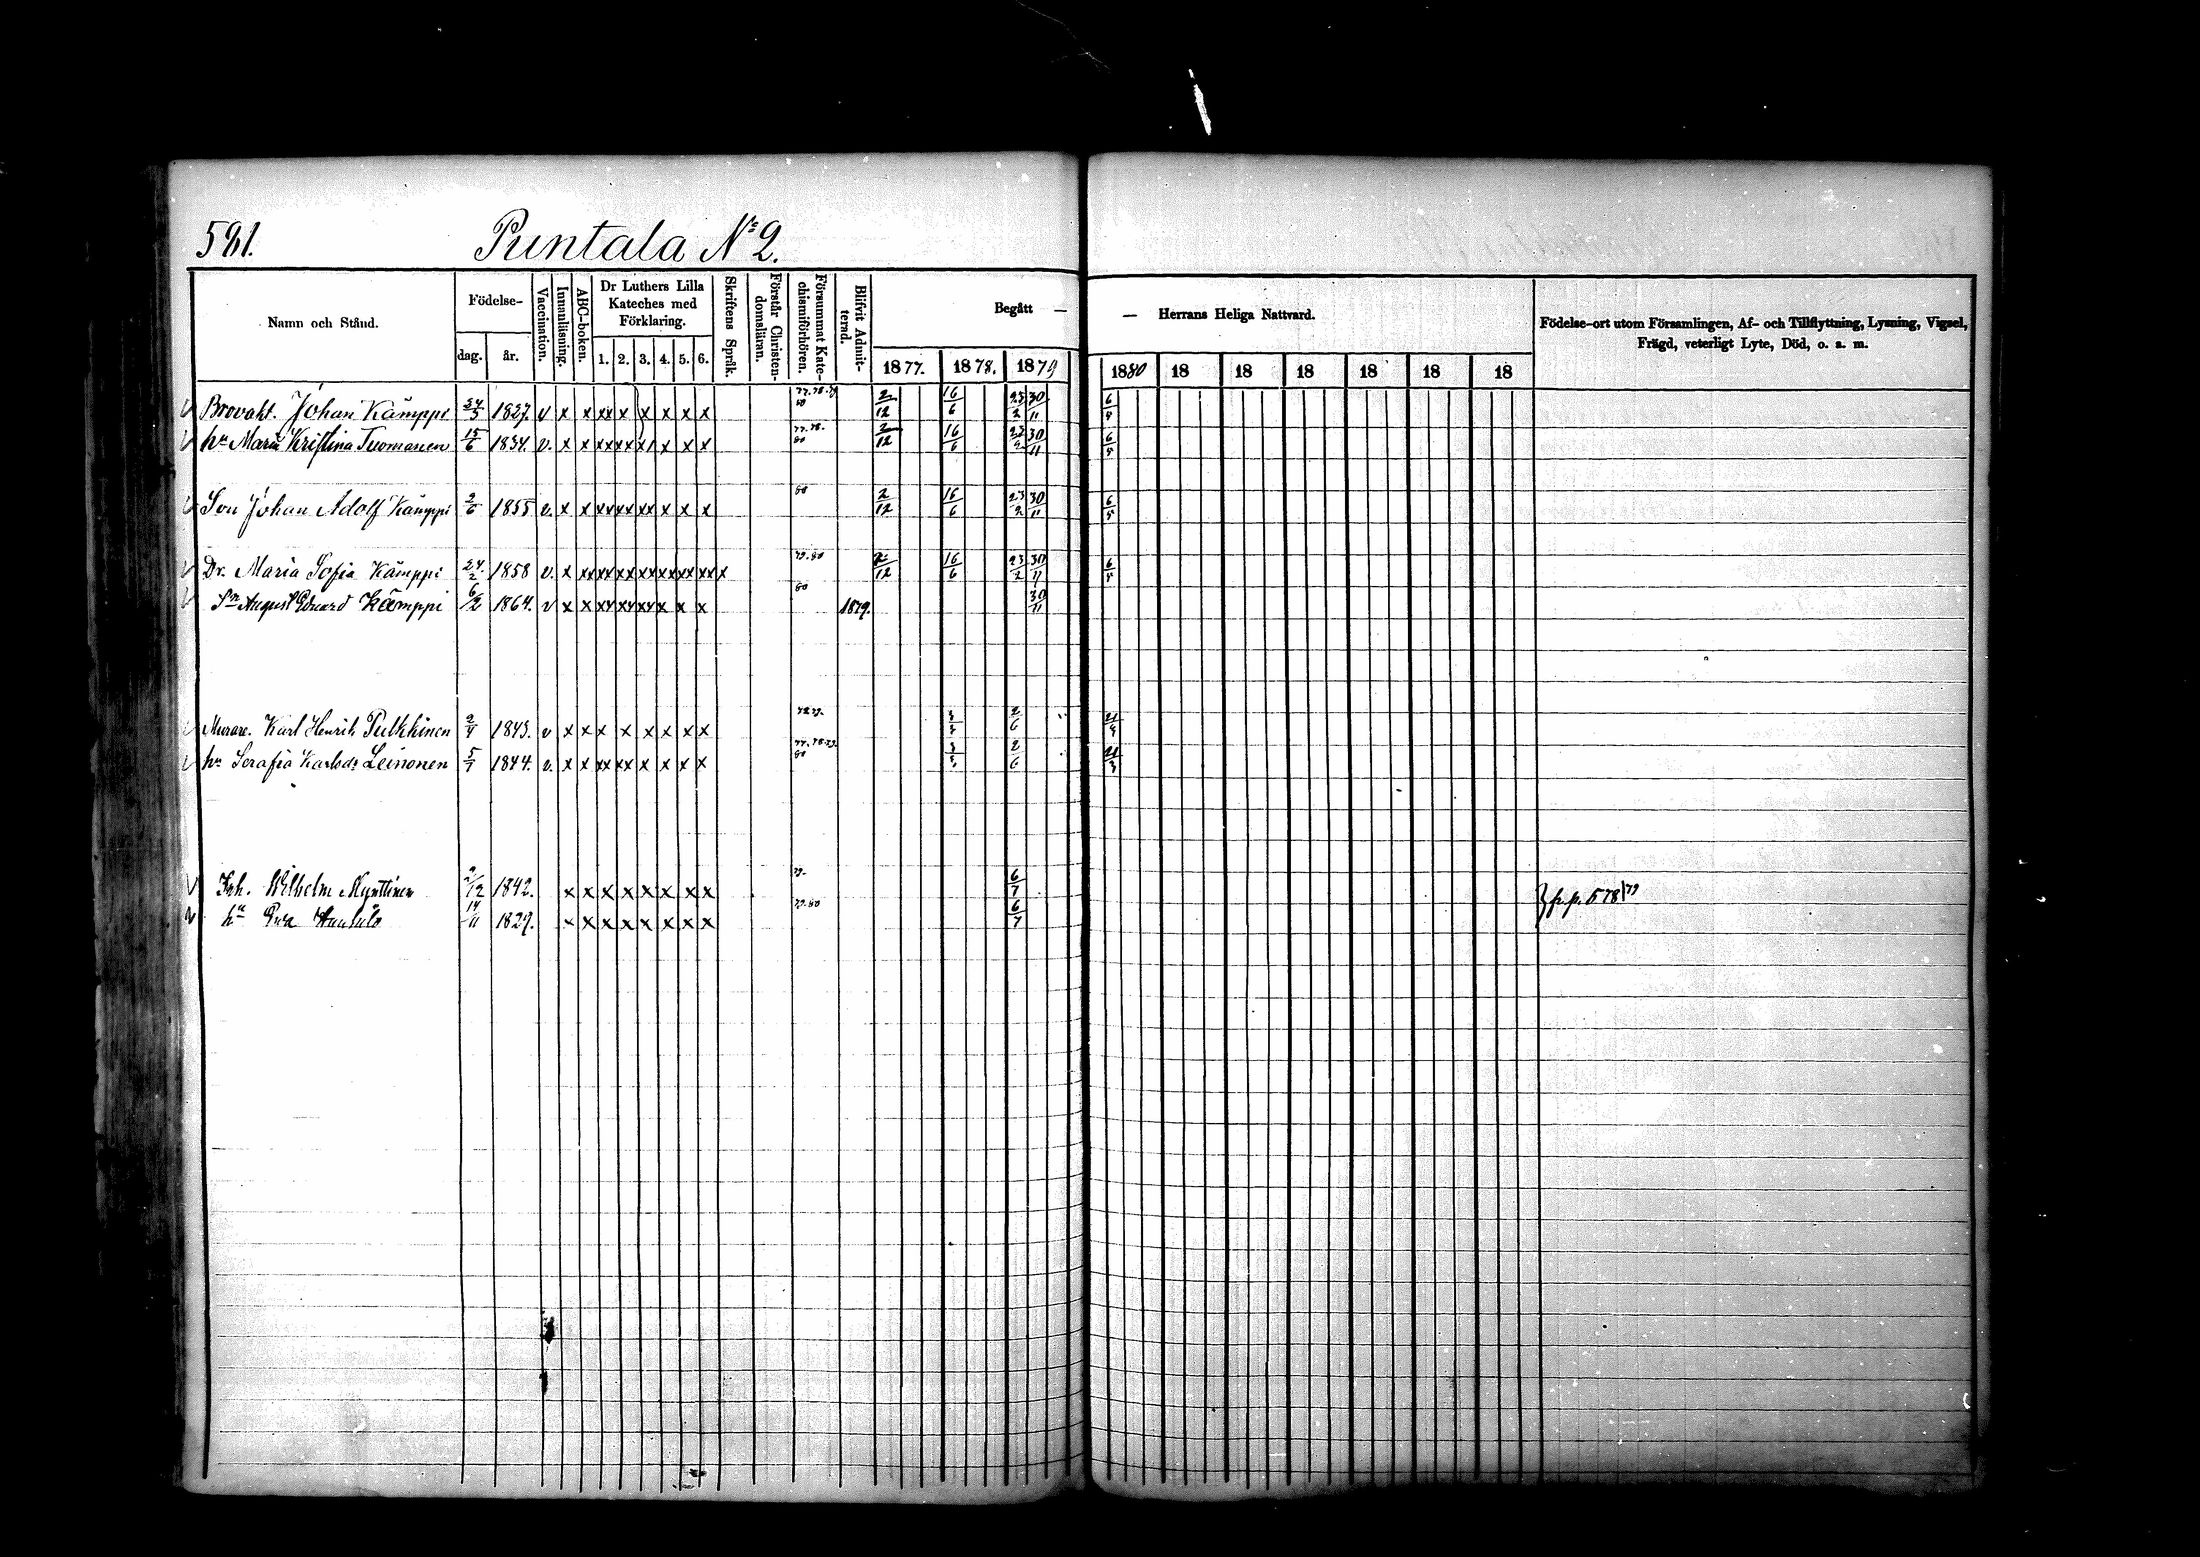 581.
Puntala № 2.
Namn och Stånd.
Födelse-
dag.
år.
Vaccination.
Innanläsning.
ABC-boken.
Dr Luthers Lilla
Kateches med
Förklaring.
1. 2. 3. 4. 5. 6.
Skriftens Språk.
Förstår Christen-
domsläran.
Försummat Kate-
chismiförhören.
Blifvit Admit-
terad.
Begått —
— Herrans Heliga Nattvard.
1877. 1878. 1879 1880 18 18 18 18 18 18
Födelse-ort utom Församlingen, Af- och Tillflyttning, Lysning, Vigsel,
Frägd, veterligt Lyte, Död, o. s. m.
Brovakt. Johan Kämppi 24/5 1827. v x x xx x x x x x 77.78.79 80 2/12 16/6 23/2 30/11 6/5
hu Maria Kristina Tuomanen 15/6 1834. v. x x xx xx x x x x 77.78. 80 2/12 16/6 23/2 30/11 6/5
Son Johan Adolf Kämppi 2/6 1855 v. x x xx xx xx x x x 80 2/12 16/6 23/2 30/11 6/5
Dr. Maria Sofia Kämppi 24/2 1858 v. x xx xx xx xx xx xx xx x 79.80 2/12 16/6 23/2 30/11 6/5
Sn August Eduard Kämppi 6/2 1864. v x x xx xx xx x x x 80 1879. 30/11
Murare. Karl Henrik Pulkkinen 2/4 1843. v x x x x x x x x 2/6
hu Serafia Karlsdr Leinonen 5/7 1844. v. x x xx xx x x x x 77.78.79. 80 2/6 21/3
Inh. Wilhelm Mynttinen 2/12 1842. x x x x x x x x 79. 6/7 } p.p. 578/79
hu Eva 14/11 1829. x x x x x x x x 79.80 6/7